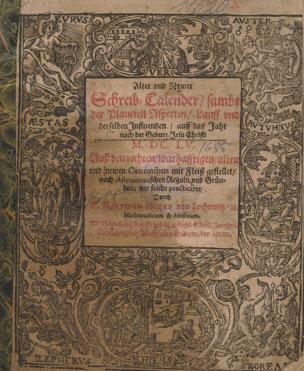 EVRVS
AVSTER
VER
ÆSTAS
AVTVMNVS
Alter und Newer
Schreib-Calender/ sambt
der Planeten Aspecten/ Lauff und
derselben Influentzen/ auff das Jahr
nach der Geburt Jesu Christi
M. DC. LV. 1655
Auß den rechten/ warhafftigen alten
und newen Canonibus mit Fleiß gestellet/
nach Astronomischen Reguln und Grün-
den/ wie solche practiciret
Durch
von Lochowitz
Mathematicum & Medicum.
ZEPHYRVS
HIEMS
BOREA